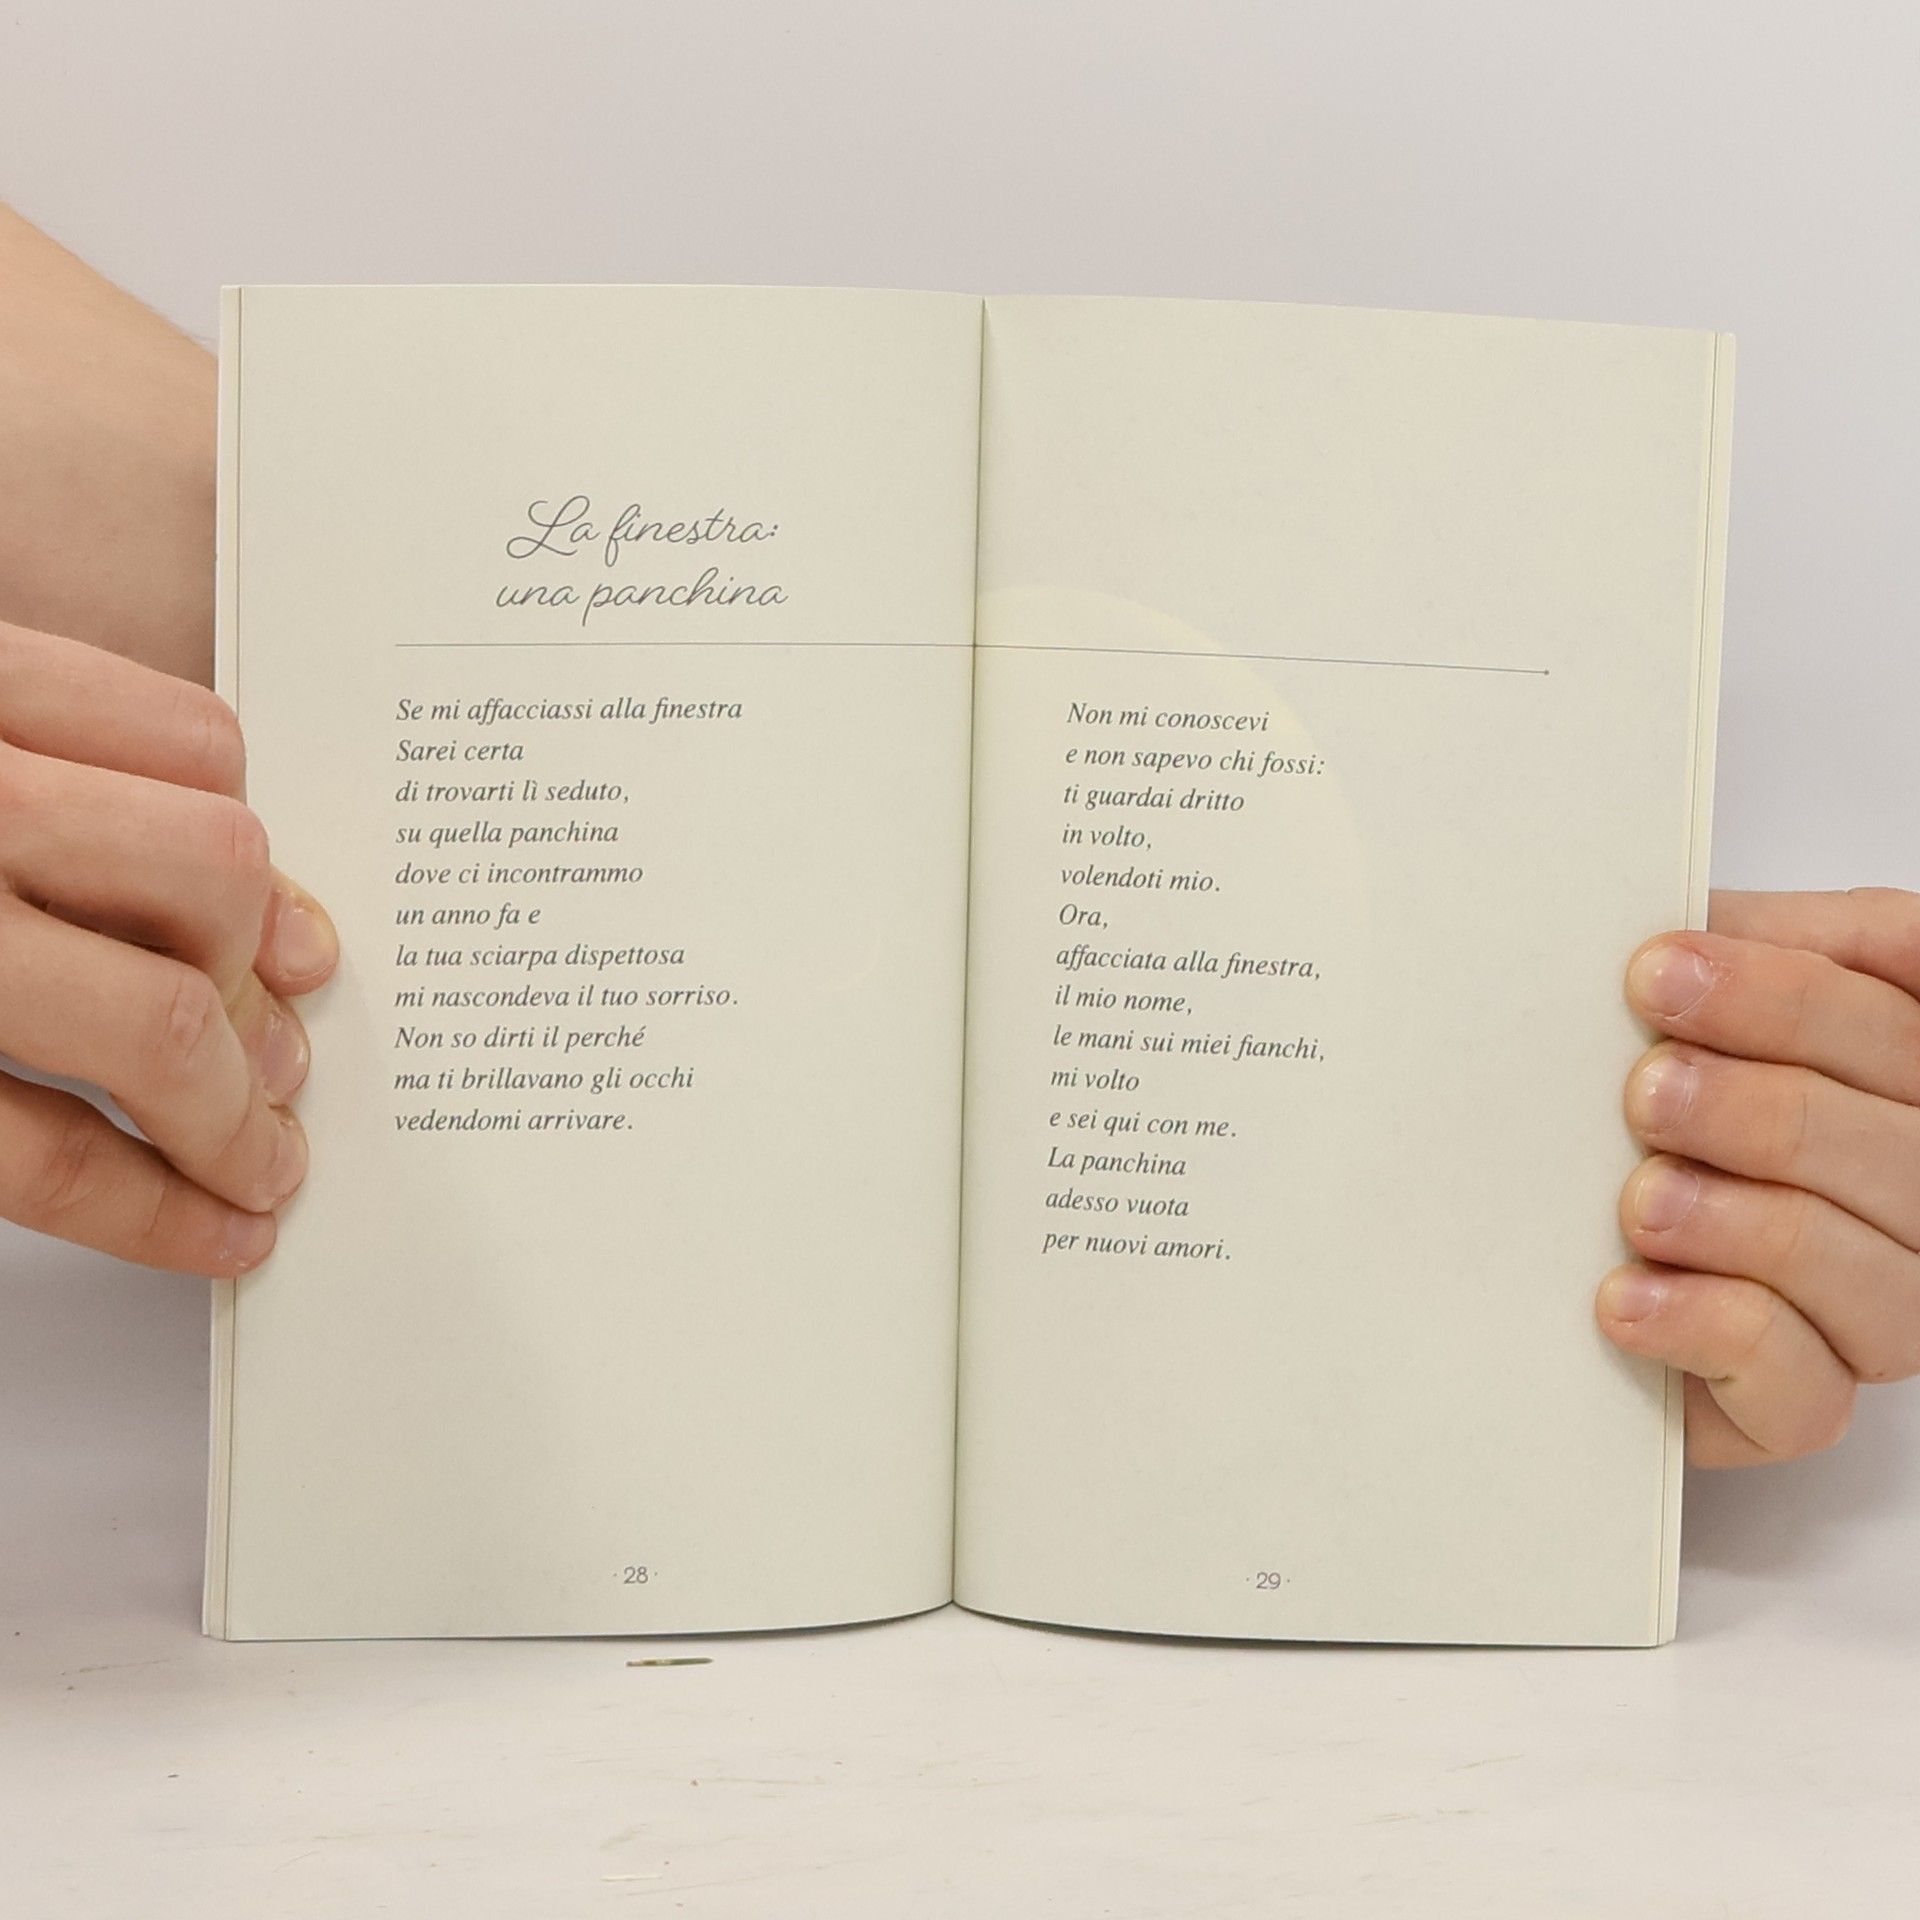 La finestra:
una panchina
Se mi affacciassi alla finestra
Sarei certa
di trovarti lì seduto,
su quella panchina
dove ci incontrammo
un anno fa e
la tua sciarpa dispettosa
mi nascondeva il tuo sorriso.
Non so dirti il perché
ma ti brillavano gli occhi
vedendomi arrivare.
· 28 ·
Non mi conoscevi
e non sapevo chi fossi:
ti guardai dritto
in volto,
volendoti mio.
Ora,
affacciata alla finestra,
il mio nome,
le mani sui miei fianchi,
mi volto
e sei qui con me.
La panchina
adesso vuota
per nuovi amori.
· 29 ·